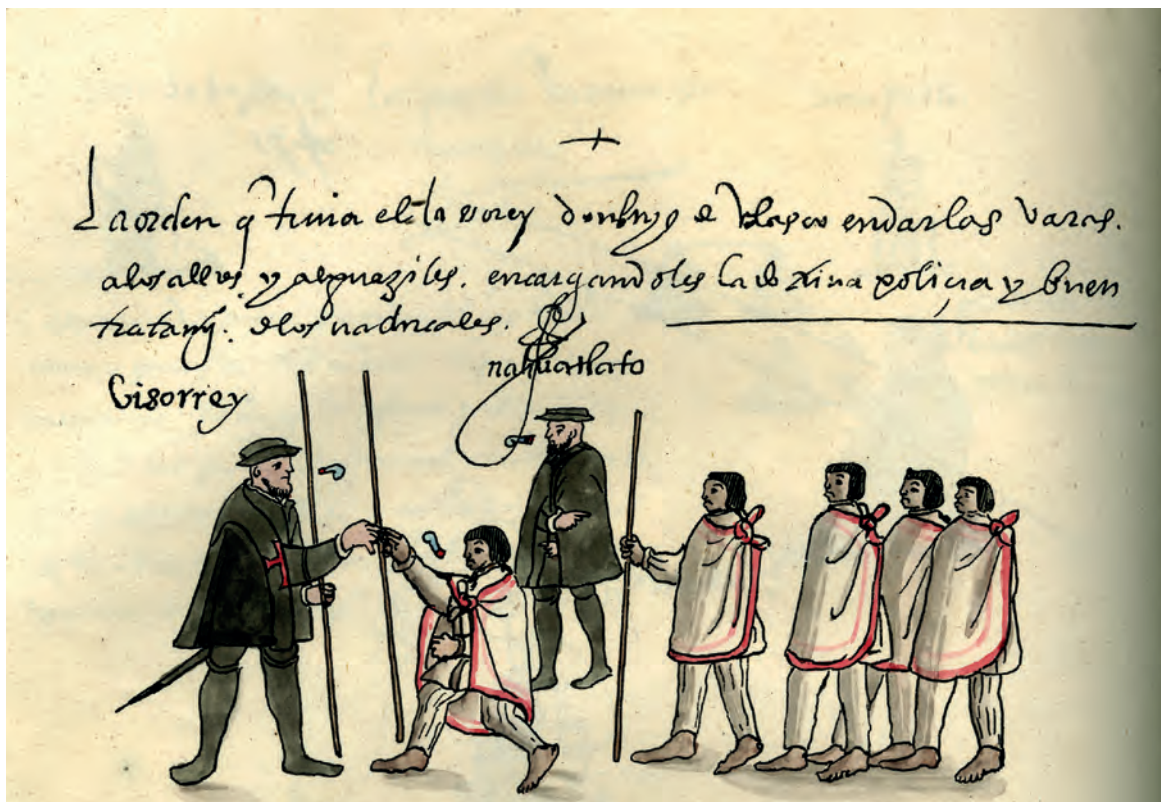 La orden q̃ tenia el visorey don luys de Velasco en dar las varas.
a los alldes y alguaziles. encargandoles la doxtrina poliçia y buen
tratamy.º de los naturales.
nahuatlato
bisorrey